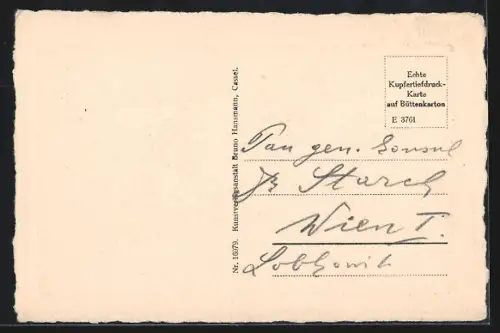 Echte
Kupfertiefdruck-
Karte
auf Büttenkarton
E 3761
Nr. 16979. Kunstverlagsanstalt Bruno Hansmann, Cassel.
gen. Consul
Starch
Wien I.
Lobkowitz